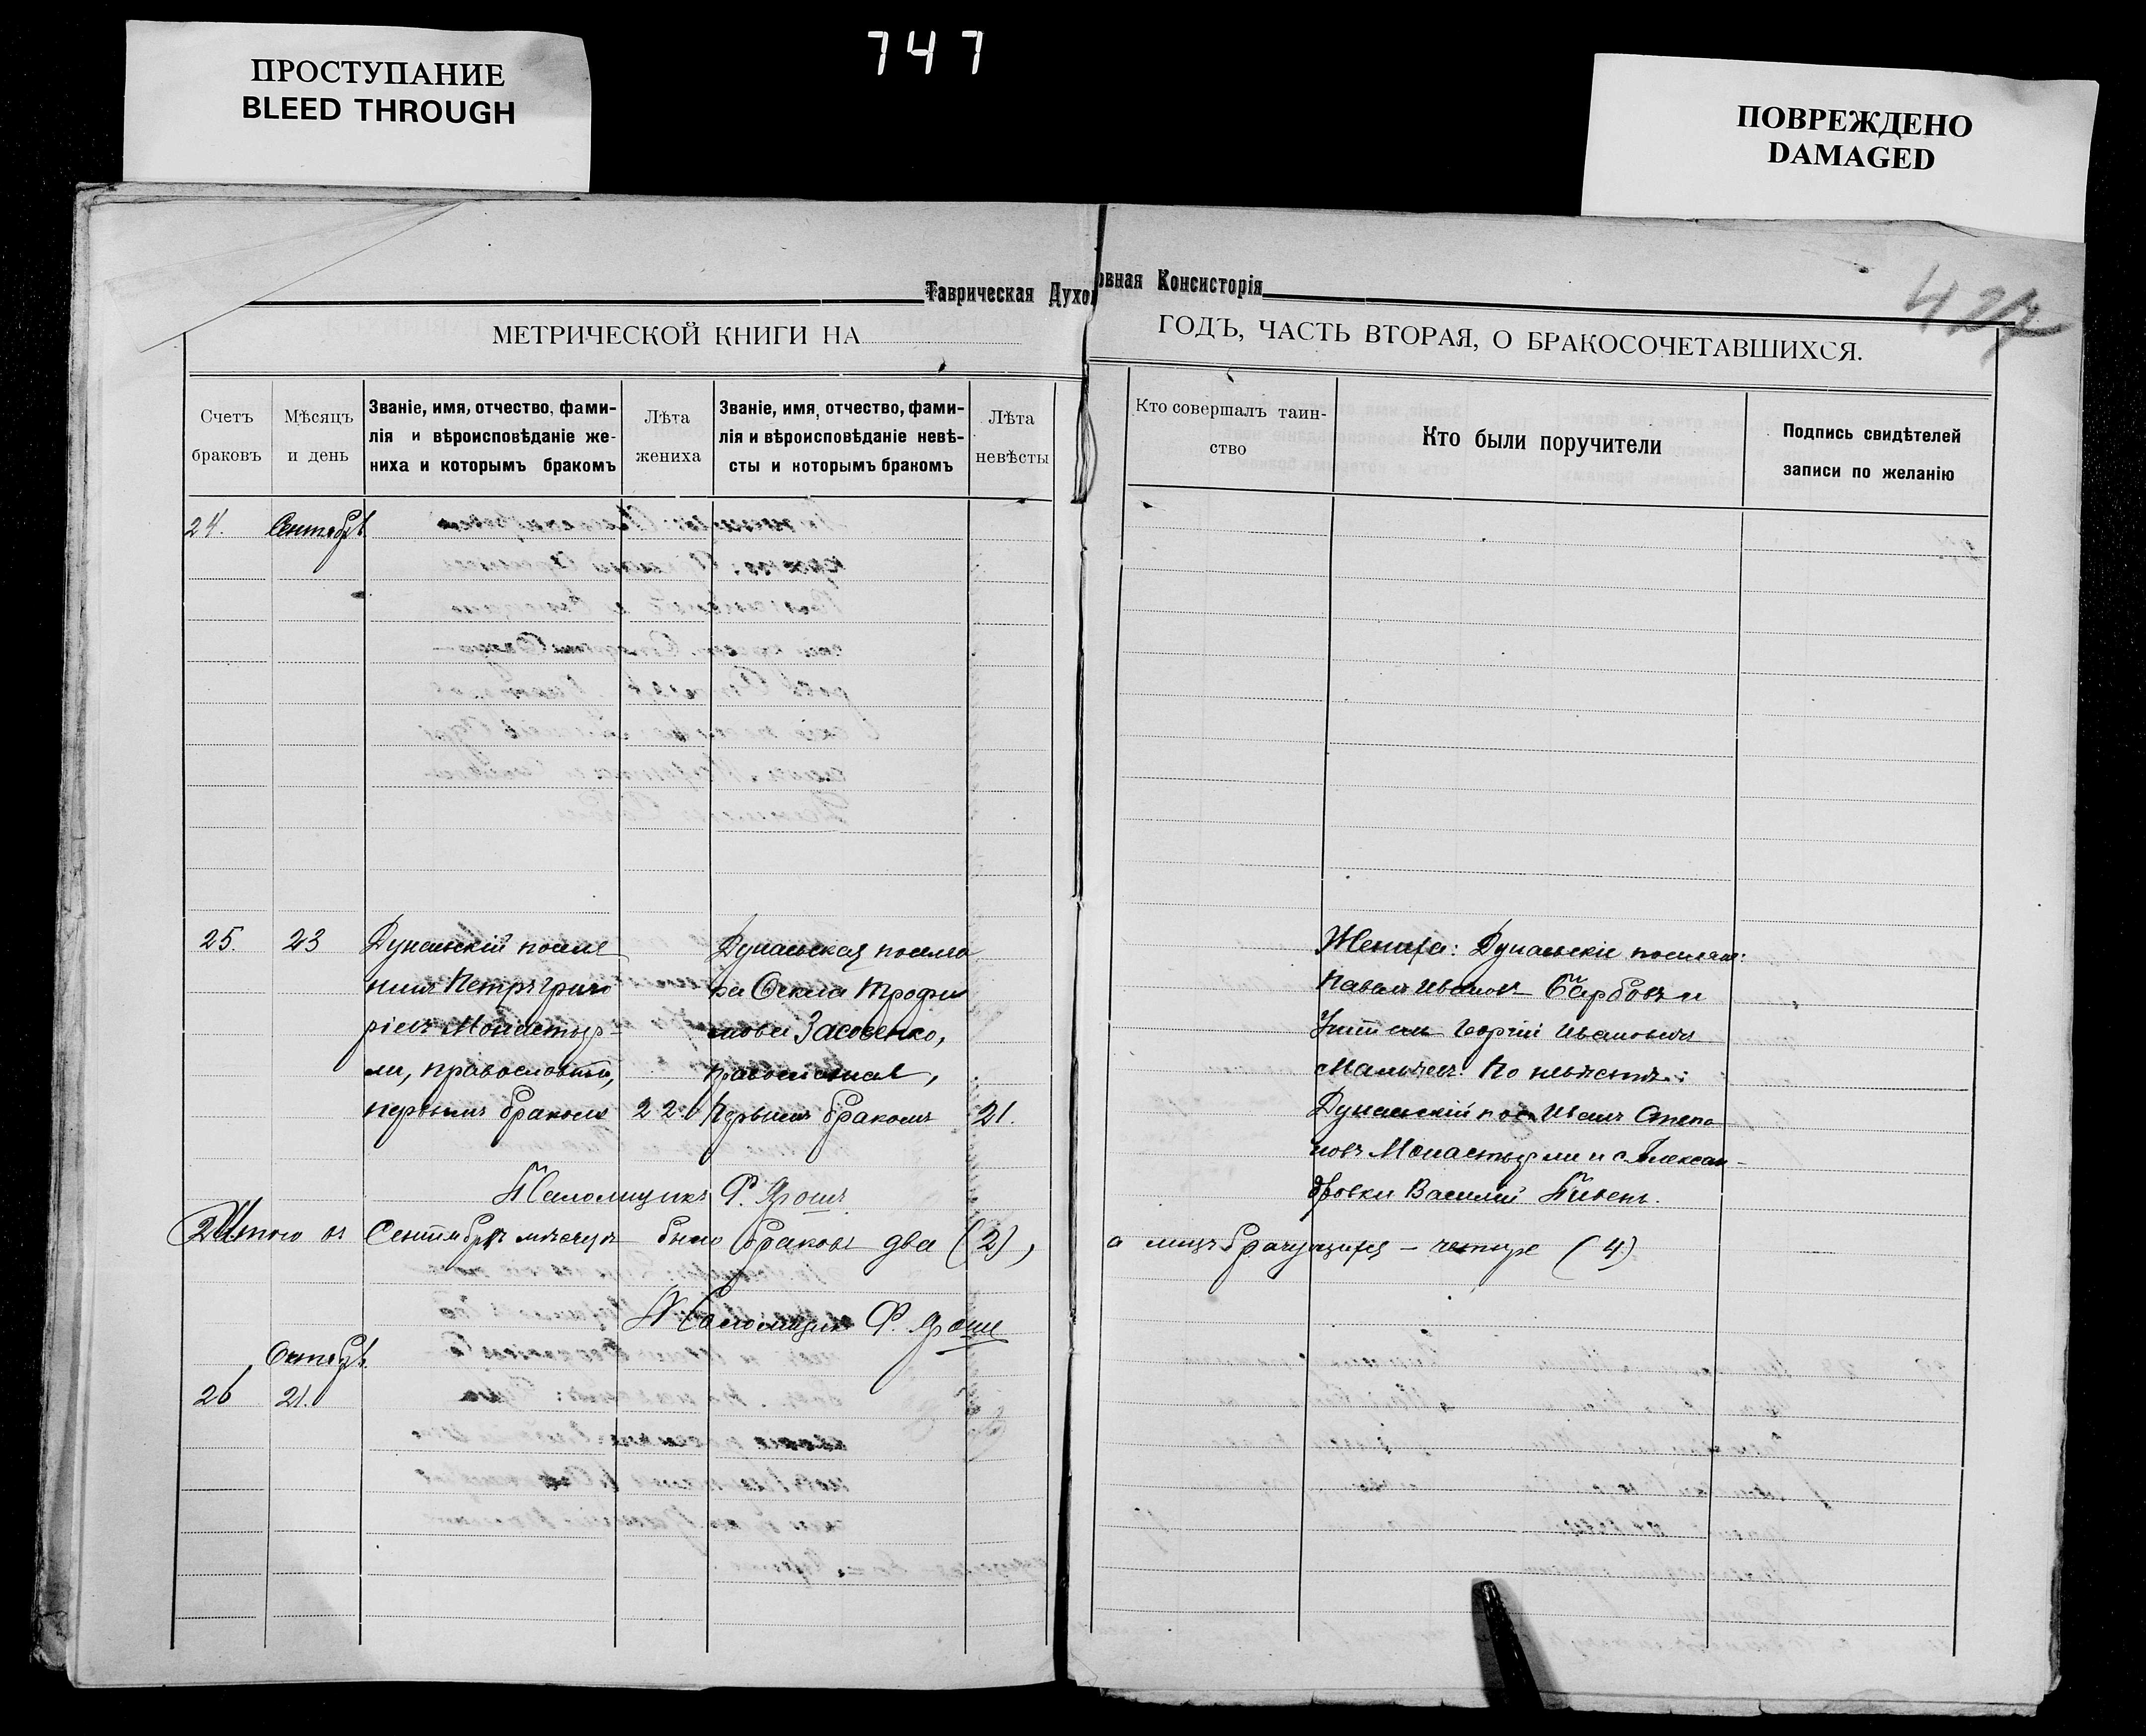 747
ПРОСТУПАНИЕ
BLEED THROUGH
ПОВРЕЖДЕНО
DAMAGED
Таврическая Духовная Консисторія
427
МЕТРИЧЕСКОЙ КНИГИ НА
ГОДЪ, ЧАСТЬ ВТОРАЯ, О БРАКОСОЧЕТАВШИХСЯ.
Счетъ
браковъ
Мѣсяцъ
и день
Званіе, имя, отчество, фами-
лія и вѣроисповѣданіе же-
ниха и которымъ бракомъ
Лѣта
жениха
Званіе, имя, отчество, фами-
лія и вѣроисповѣданіе невѣ-
сты и которымъ бракомъ
Лѣта
невѣсты
Кто совершалъ таин-
ство
Кто были поручители
Подпись свидѣтелей
записи по желанію
24. Сентябрь
25. 23
Дунайскій поселя
нинъ Петръ Григо
ріевъ Монастыр-
ли, православный,
первымъ бракомъ
22.
Дунайская поселян
ка Ѳекла Трофи
мова Засовенко,
православная,
первымъ бракомъ
21.
Жениха: Дунайскіе поселяне:
Павелъ Ивановъ и
Георгій Ивановичъ
По невѣстѣ:
Дунайскій пос. Иванъ Степа
новъ Монастырли и с. Алексан-
дровки Василій Пивень.
Псаломщикъ Ѳ. Ярошъ
Итого въ Сентябрѣ мѣсяцѣ было браковъ два (2), а лицъ брачущихся – четыре (4)
Псаломщикъ Ѳ. Ярошъ
Октябрь
26 21.